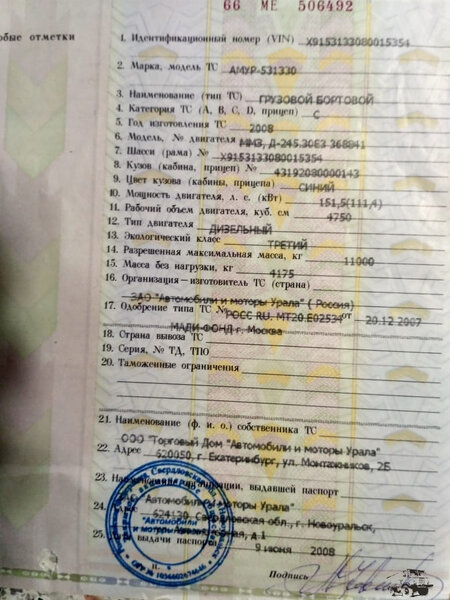 66 МЕ 506492
обые отметки
1. Идентификационный номер (VIN) X9153133080015354
2. Марка, модель ТС АМУР-531330
3. Наименование (тип ТС) ГРУЗОВОЙ БОРТОВОЙ
4. Категория ТС (А, В, С, D, прицеп) С
5. Год изготовления ТС 2008
6. Модель, № двигателя ММЗ, Д-245.30Е3 368841
7. Шасси (рама) № X9153133080015354
8. Кузов (кабина, прицеп) № 43192080000143
9. Цвет кузова (кабины, прицепа) СИНИЙ
10. Мощность двигателя, л. с. (кВт) 151,5(111,4)
11. Рабочий объем двигателя, куб. см 4750
12. Тип двигателя ДИЗЕЛЬНЫЙ
13. Экологический класс ТРЕТИЙ
14. Разрешенная максимальная масса, кг 11000
15. Масса без нагрузки, кг 4175
16. Организация-изготовитель ТС (страна)
ЗАО "Автомобили и моторы Урала" ( Россия)
17. Одобрение типа ТС № РОСС RU. МТ20.Е02534 от 20.12.2007
МАДИ-ФОНД г. Москва
18. Страна вывоза ТС
19. Серия, № ТД, ТПО
20. Таможенные ограничения
21. Наименование (ф. и. о.) собственника ТС
ООО "Торговый Дом "Автомобили и моторы Урала"
22. Адрес 620050, г. Екатеринбург, ул. Монтажников, 2Б
23. Наименование организации, выдавшей паспорт
Автомобили и моторы Урала"
24. Адрес 624130, Свердловская обл., г. Новоуральск,
д.1
25. Дата выдачи паспорта 9 июня 2008
"Автомобили
и моторы Урала"
Подпись